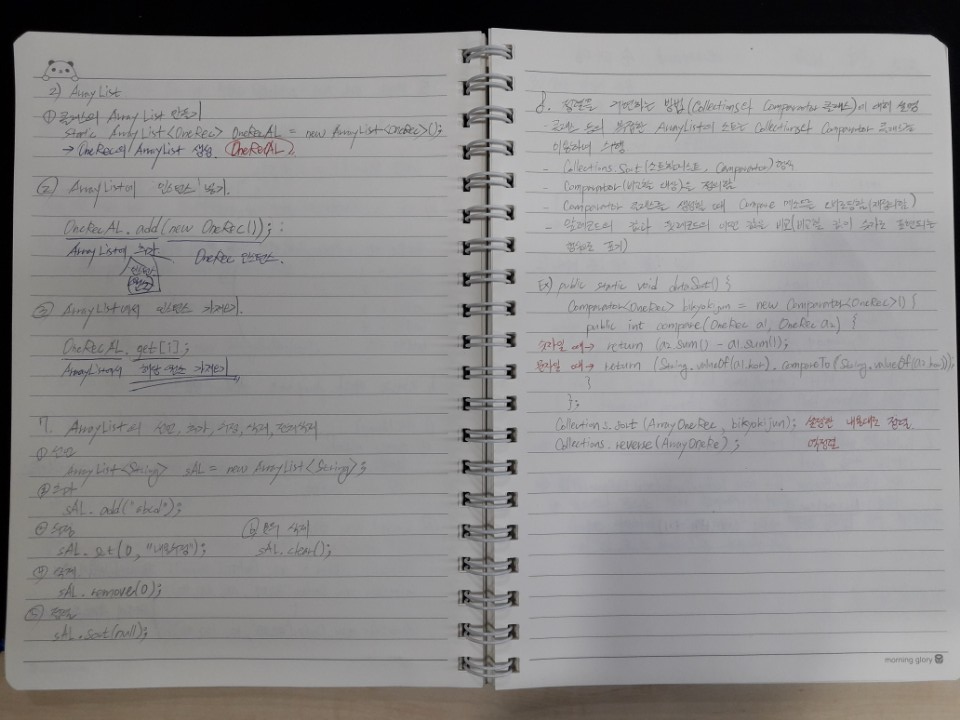 2) ArrayList
① 클래스의 Array List 만들기
static ArrayList<OneRec> OneRecAL = new ArrayList<OneRec>();
→ OneRec의 ArrayList 생성. (OneRecAL).
② ArrayList에 인스턴스 넣기.
OneRecAL.add(new OneRec());
ArrayList에 누가 OneRec 인스턴스.
③ ArrayList에서 인스턴스 가져오기.
OneRecAL.get[i];
ArrayList의 해당 가져오기
7. ArrayList의 선언, 추가, 수정, 삭제, 전체삭제
① 선언
ArrayList<String> sAL = new ArrayList<String>;
추가
sAL.add("abcd");
수정 ⑥ 전체 삭제
sAL.set(0, "내용수정"); sAL.clear();
삭제
sAL.remove(0);
⑤ 정렬
sAL.sort(null);
8. 정렬을 구현하는 방법(Collections와 Comparator 클래스)에 대해 설명
- 클래스 등의 복잡한 ArrayList의 소트는 Collections와 Comparator 클래스를
이용하여 수행
- Collections.Sort(소트할리스트, Comparator) 형식
- Comparator(비교 대상)을 정의함
- Comparator 클래스를 생성할 때 Compare 메소드를 오버로딩함(재정의함)
- 앞레코드의 값과 뒷레코드의 어떤 값을 비교(비교할 값이 숫자로 표현되는
함수로 표기)
Ex) public static void dataSort() {
Comparator<OneRec> bikyokijun = new Comparator<OneRec>() {
public int compare(OneRec a1, OneRec a2) {
숫자일 때→ return (a2.sum() - a1.sum());
문자일 때→ return (String.valueOf(a1.kor).compareTo(String.valueOf(a2.kor)));
}
};
Collections.sort(ArrayOneRec, bikyokijun); 설정한 내용대로 정렬.
Collections.reverse(ArrayOneRe); 역정렬
morning glory